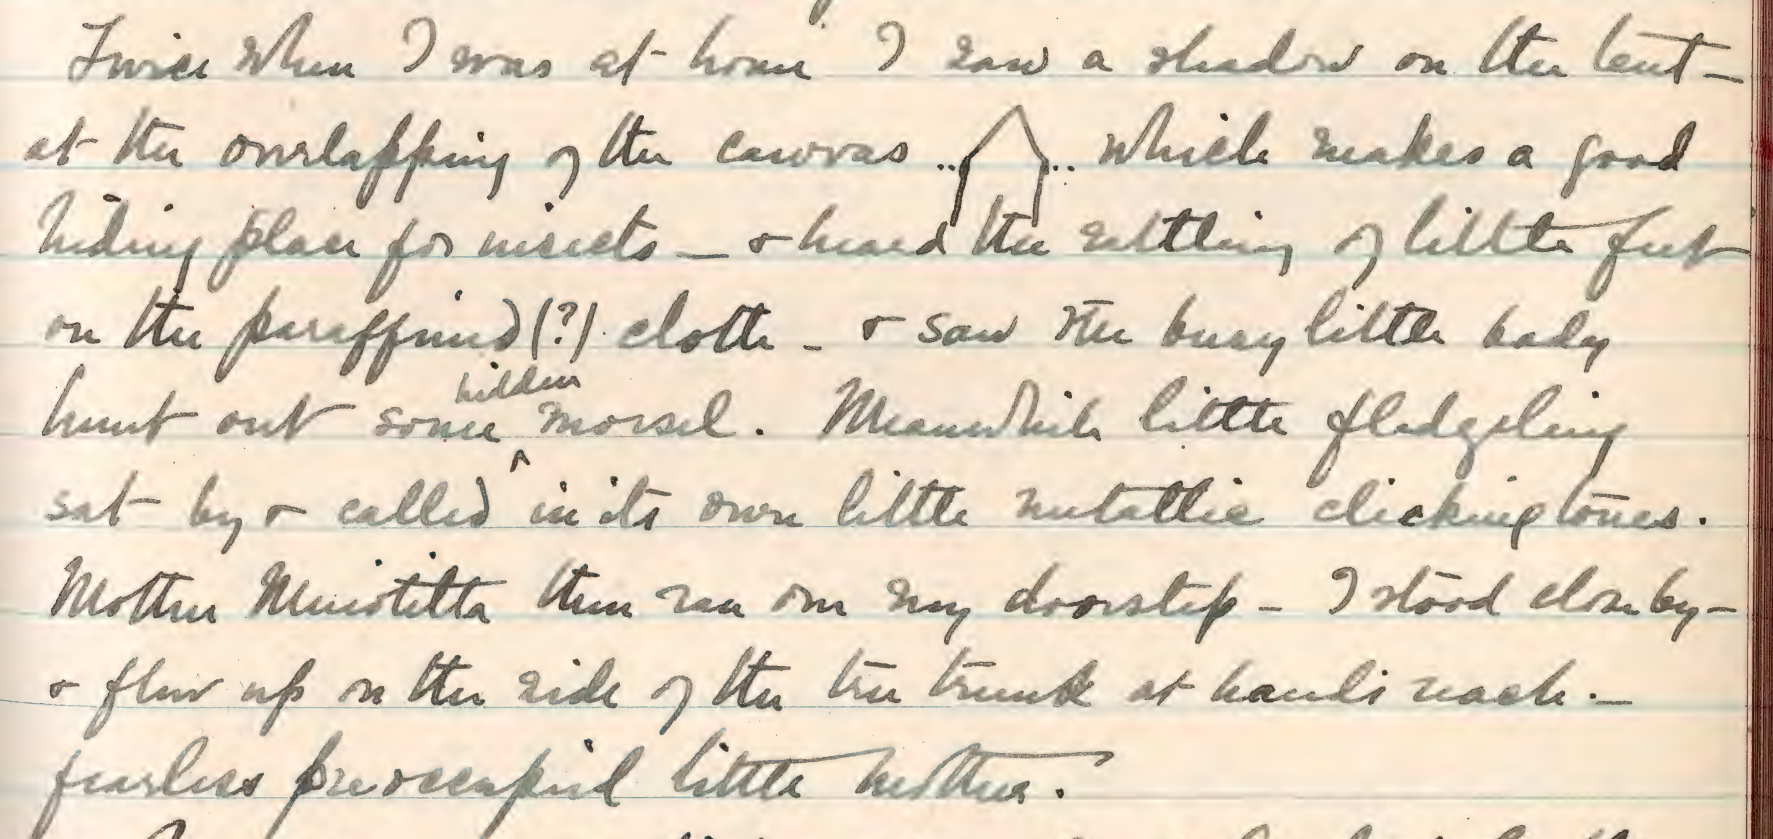 Twice when I was at home I saw a shadow on the tent –
at the overlapping of the canvas .. .. which makes a good
hiding place for insects – & heard the rattling of little feet
on the paraffined (?) cloth – & saw the busy little body
hunt out some hidden morsel. Meanwhile little fledgeling
sat by & called in its own little metallic clicking tones.
Mother Mniotilta then ran on my doorstep – I stood close by –
& flew up on the side of the tree trunk at hands reach. –
fearless preoccupied little mother.